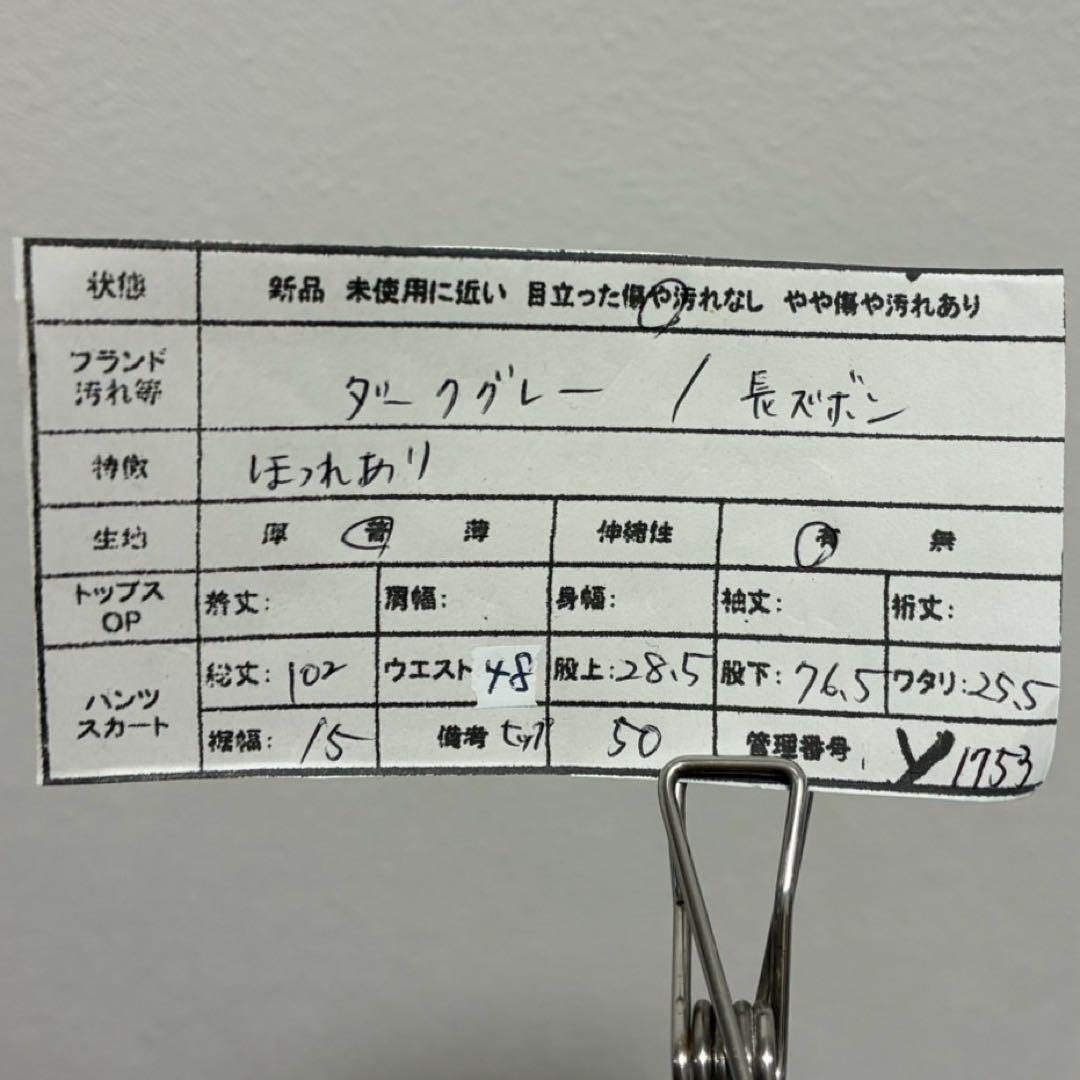 状態 新品 未使用に近い 目立った傷や汚れなし やや傷や汚れあり
ブランド
汚れ等 ダークグレー / 長ズボン
特徴 ほつれあり
生地 厚 普 薄 伸縮性 有 無
トップス
OP 着丈: 肩幅: 身幅: 袖丈: 裄丈:
パンツ
スカート 総丈: 102 ウエスト 48 股上: 28.5 股下: 76.5 ワタリ: 25.5
裾幅: 15 備考 ヒップ 50 管理番号 Y1753